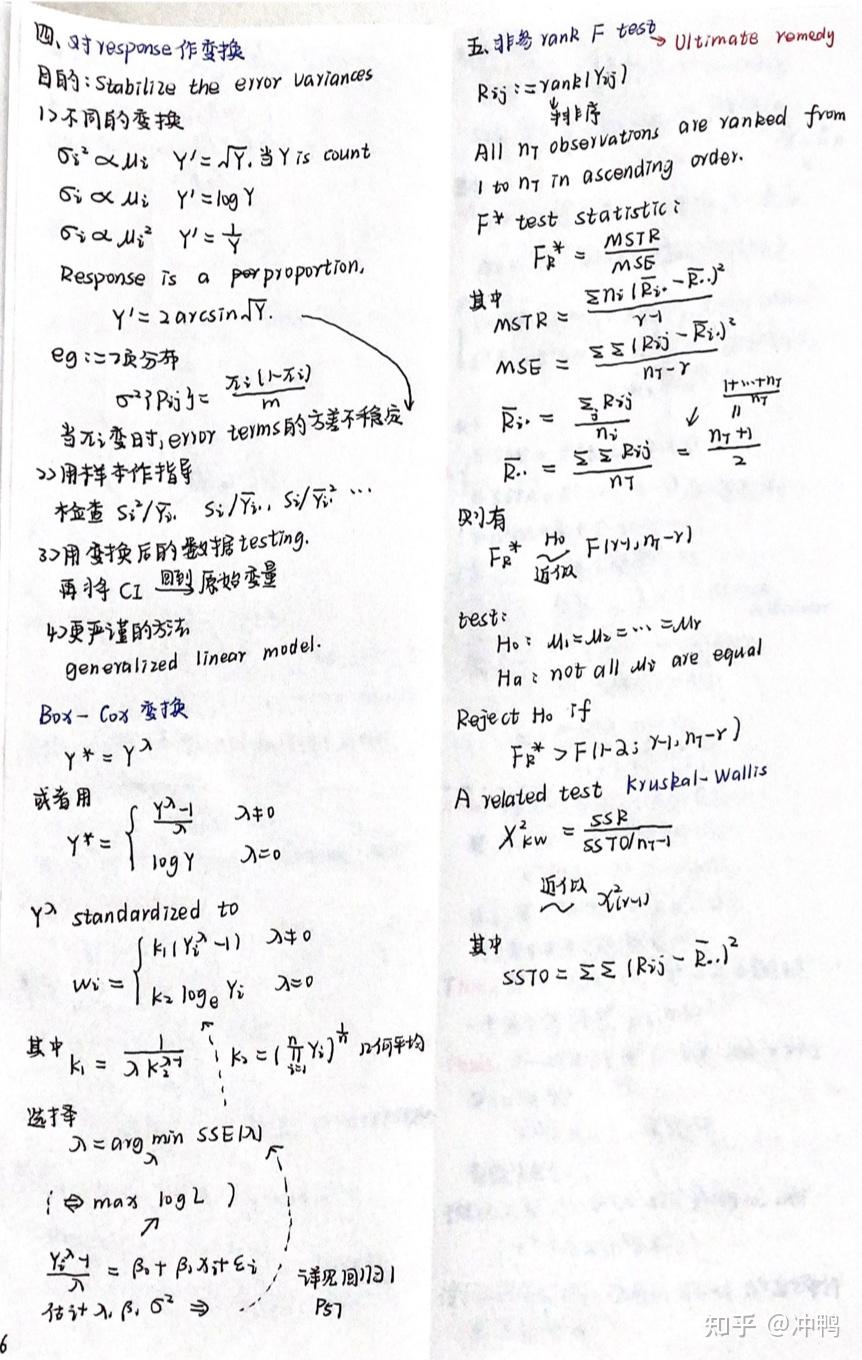 四、对response作变换
目的：Stabilize the error variances
1>不同的变换
σi² ∝ μi Y' = √Y. 当 Y is count
σi ∝ μi Y' = log Y
σi ∝ μi² Y' = 1/Y
Response is a proportion,
Y' = 2 arcsin√Y.
eg：二项分布
σ²{Pij} = πi(1-πi)/m
当πi变时, error terms的方差不稳定
2>用样本作指导
检查 Si²/Ȳi. Si/Ȳi., Si/Ȳi.² …
3>用变换后的数据testing.
再将 CI 回到 原始变量
4>更严谨的方法
generalized linear model.
Box-Cox 变换
Y* = Y^λ
或者用
Y* = { (Y^λ-1)/λ λ≠0
log Y λ=0
Y^λ standardized to
Wi = { k1(Yi^λ-1) λ≠0
k2 loge Yi λ=0
其中 k1 = 1/(λ k2^(λ-1)) k2 = (∏(i=1→n) Yi)^(1/n) 几何平均
选择
λ = arg min_λ SSE(λ)
( ⇔ max log L )
(Yi^λ-1)/λ = β0 + β1xi + εi
估计 λ, β, σ² ⇒
详见回归1
P57
五、非参 rank F test → Ultimate remedy
Rij := rank(Yij)
排序
All nT observations are ranked from
1 to nT in ascending order.
F* test statistic:
FR* = MSTR/MSE
其中
MSTR = Σni(R̄i. - R̄..)²/(r-1)
MSE = ΣΣ(Rij - R̄i.)²/(nT-r)
R̄i. = Σj Rij/ni
(1+…+nT)/nT
R̄.. = ΣΣRij/nT = (nT+1)/2
则有
FR* ~ F(r-1, nT-r)
H0
近似
test:
H0: μ1=μ2=…=μr
Ha: not all μi are equal
Reject H0 if
FR* > F(1-α; r-1, nT-r)
A related test Kruskal-Wallis
X²KW = SSR/(SSTO/nT-1)
近似 ~ χ²(r-1)
其中
SSTO = ΣΣ(Rij - R̄..)²
6
知乎 @冲鸭